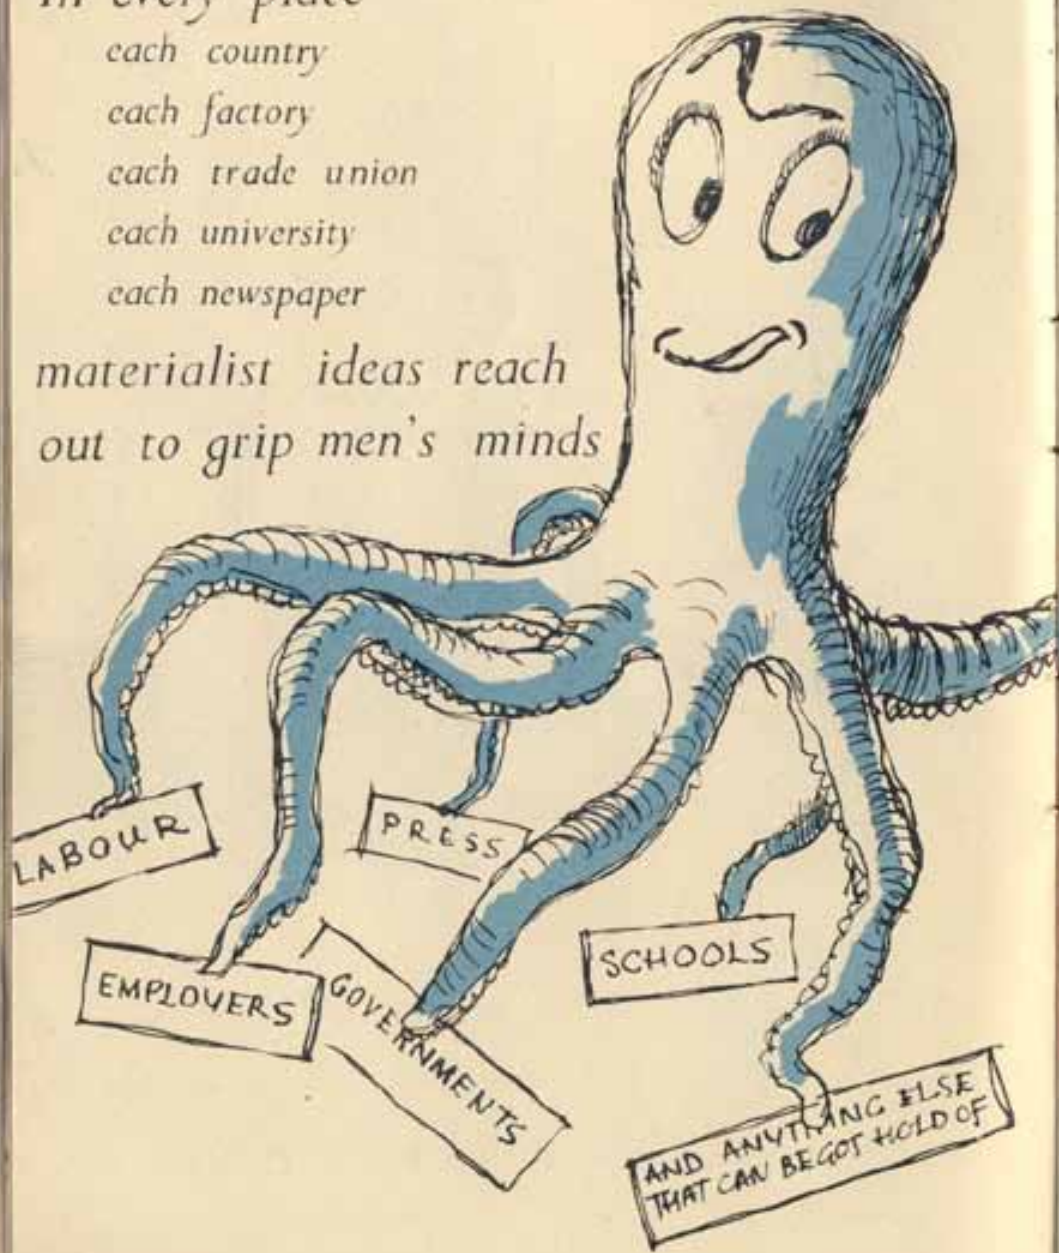 in every place
each country
each factory
each trade union
each university
each newspaper
materialist ideas reach
out to grip men's minds
LABOUR
PRESS
EMPLOYERS
GOVERNMENTS
SCHOOLS
AND ANYTHING ELSE
THAT CAN BE GOT HOLD OF